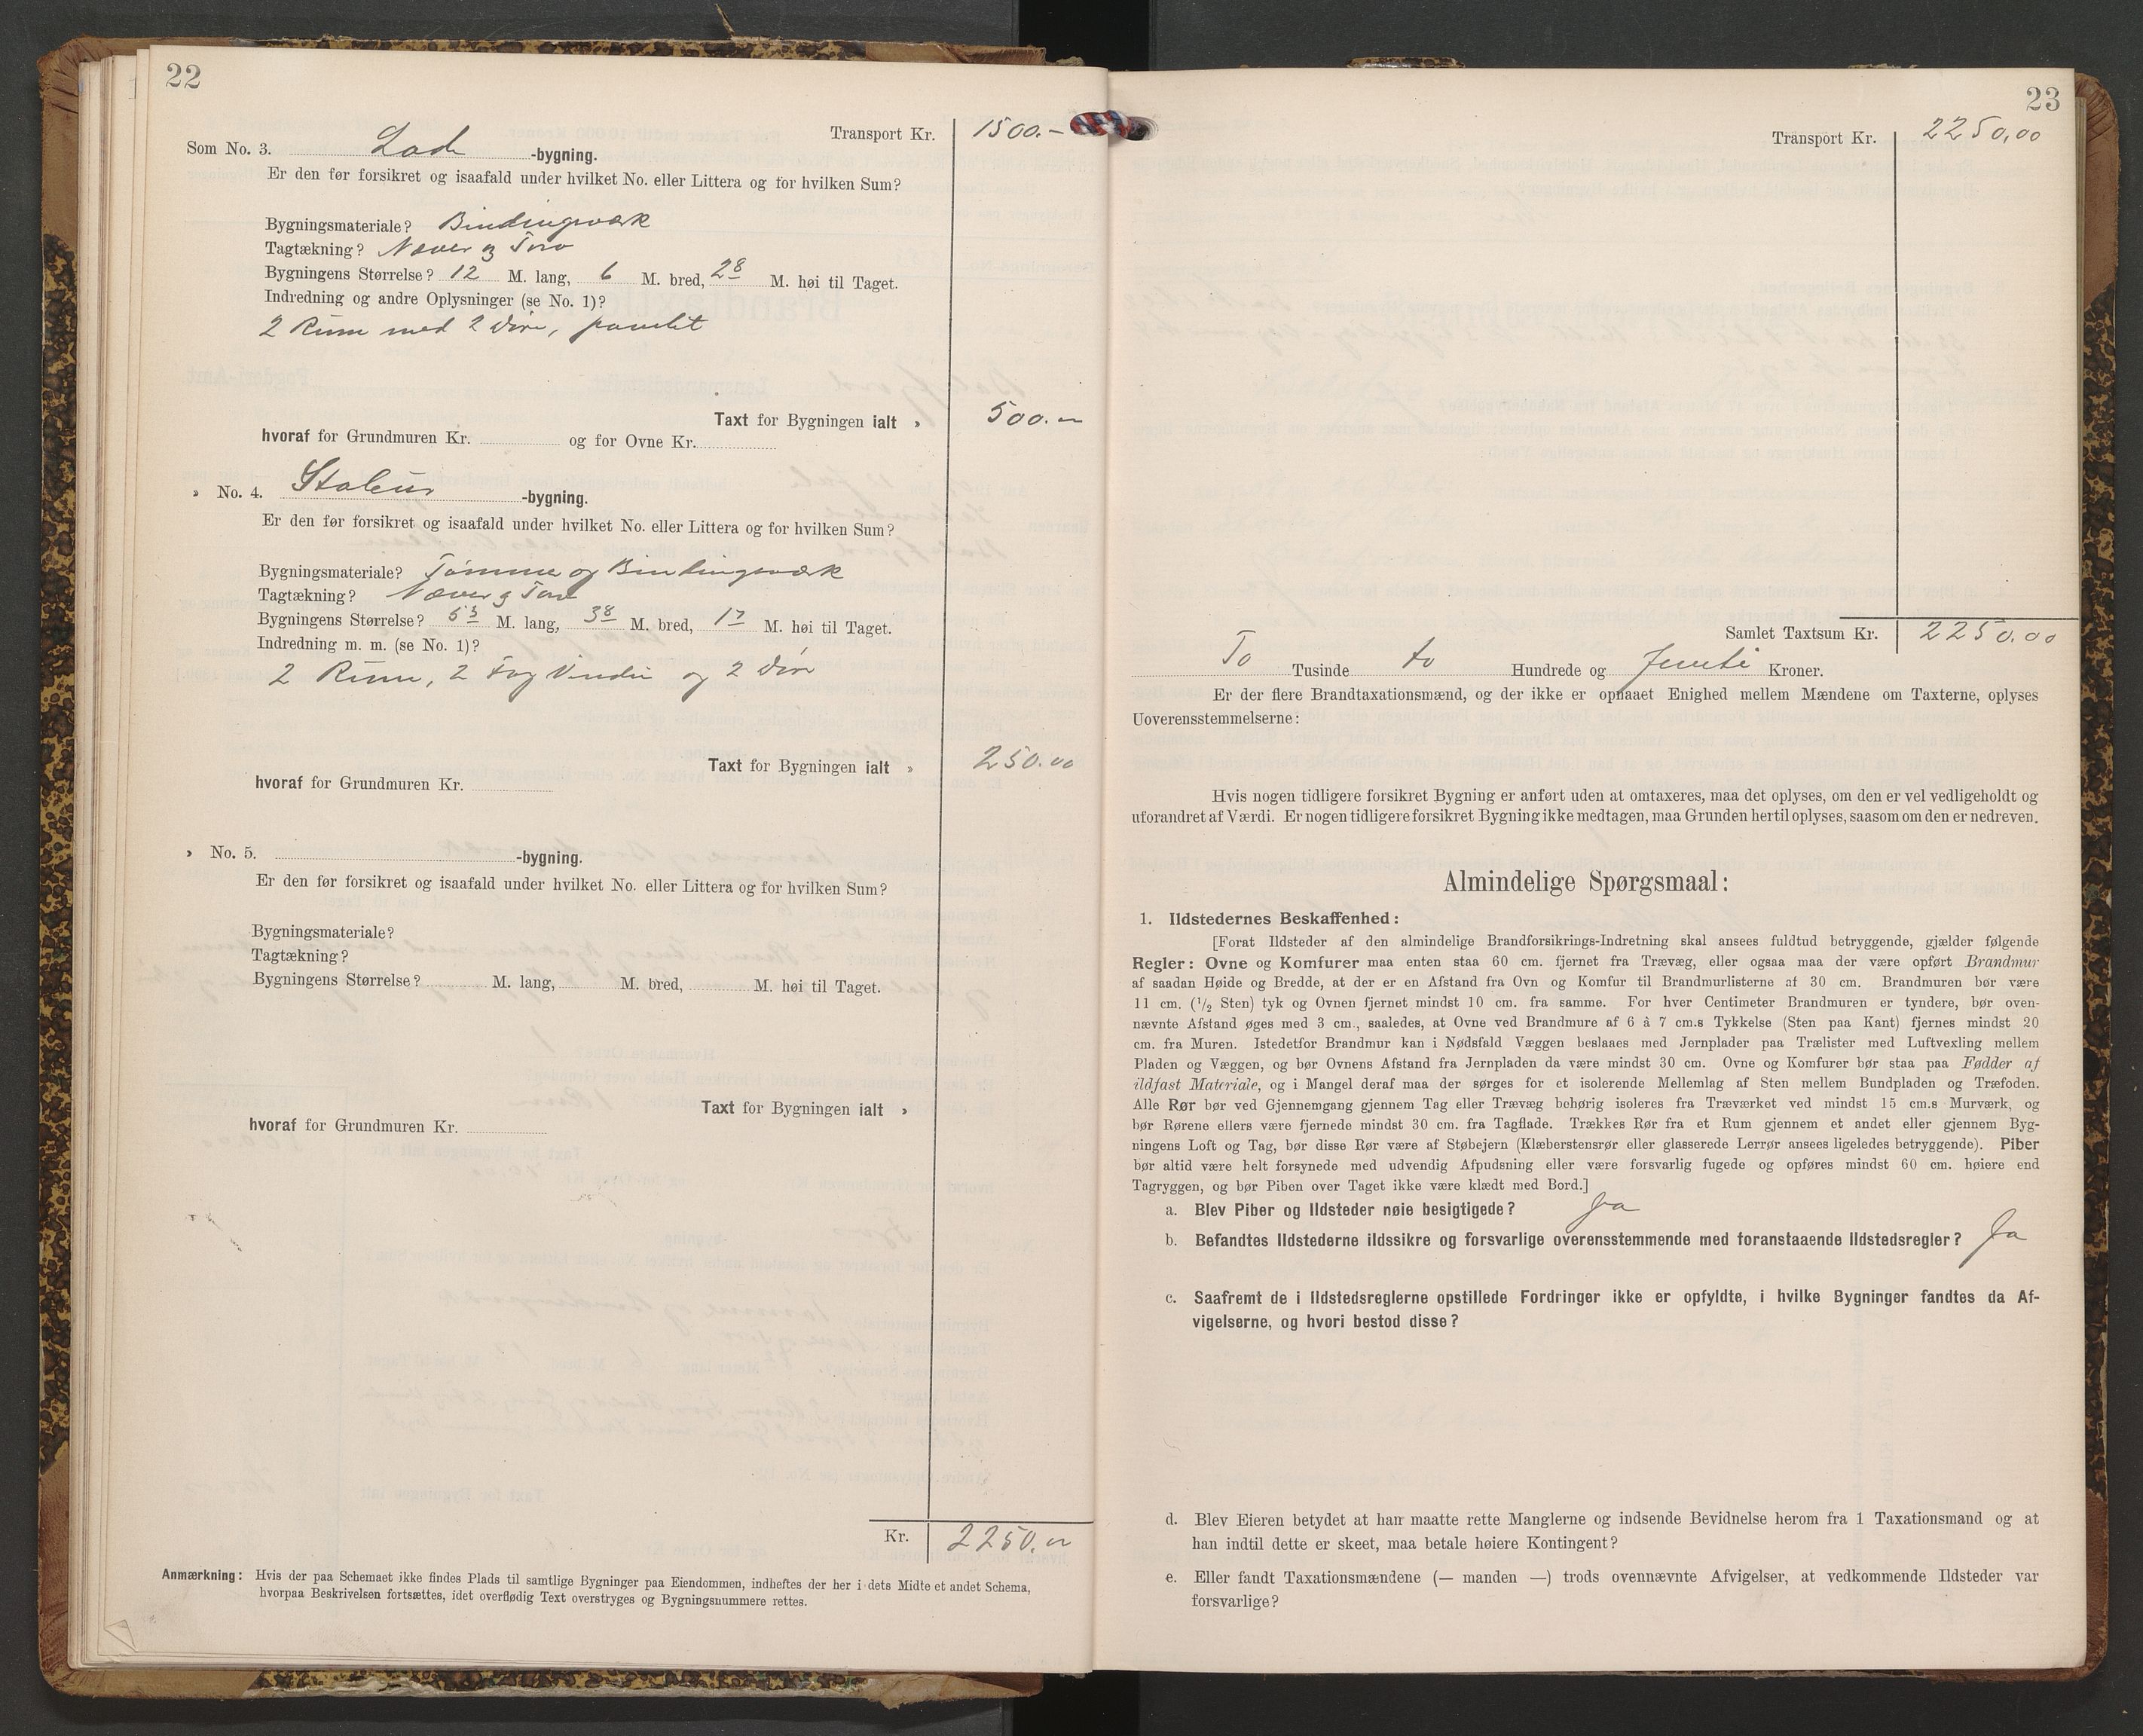 22
Transport Kr. 1500.-
Som No. 3. Lade -bygning.
Er den før forsikret og isaafald under hvilket No. eller Littera og for hvilken Sum?
Bygningsmateriale? Bindingsværk
Tagtækning? Næver og Torv
Bygningens Størrelse? 12 M. lang, 6 M. bred, 2 8 M. høi til Taget.
Indredning og andre Oplysninger (se No. 1)?
2 Rum med 2 Døre, panelet
Taxt for Bygningen ialt » 500.-
hvoraf for Grundmuren Kr. og for Ovne Kr.
» No. 4. Stabur -bygning.
Er den før forsikret og isaafald under hvilket No. eller Littera og for hvilken Sum?
Bygningsmateriale? Tømmer og Bindingsværk
Tagtækning? Næver og Torv
Bygningens Størrelse? 5 5 M. lang, 3 8 M. bred, 1 7 M. høi til Taget.
Indredning m. m. (se No. 1)?
2 Rum, 2 Fag Vinduer og 2 Døre
Taxt for Bygningen ialt » 250.00
hvoraf for Grundmuren Kr.
» No. 5. -bygning.
Er den før forsikret og isaafald under hvilket No. eller Littera og for hvilken Sum?
Bygningsmateriale?
Tagtækning?
Bygningens Størrelse? M. lang, M. bred, M. høi til Taget.
Taxt for Bygningen ialt »
hvoraf for Grundmuren Kr.
Kr. 2250.00
Anmærkning: Hvis der paa Schemaet ikke findes Plads til samtlige Bygninger paa Eiendommen, indheftes der her i dets Midte et andet Schema,
hvorpaa Beskrivelsen fortsættes, idet overflødig Text overstryges og Bygningsnummere rettes.
23
Transport Kr. 2250,00
Samlet Taxtsum Kr. 2250.00
To Tusinde to Hundrede og femti Kroner.
Er der flere Brandtaxationsmænd, og der ikke er opnaaet Enighed mellem Mændene om Taxterne, oplyses
Uoverensstemmelserne:
Hvis nogen tidligere forsikret Bygning er anført uden at omtaxeres, maa det oplyses, om den er vel vedligeholdt og
uforandret af Værdi. Er nogen tidligere forsikret Bygning ikke medtagen, maa Grunden hertil oplyses, saasom om den er nedreven.
Almindelige Spørgsmaal:
1. Ildstedernes Beskaffenhed:
[Forat Ildsteder af den almindelige Brandforsikrings-Indretning skal ansees fuldtud betryggende, gjælder følgende
Regler: Ovne og Komfurer maa enten staa 60 cm. fjernet fra Trævæg, eller ogsaa maa der være opført Brandmur
af saadan Høide og Bredde, at der er en Afstand fra Ovn og Komfur til Brandmurlisterne af 30 cm. Brandmuren bør være
11 cm. (1/2 Sten) tyk og Ovnen fjernet mindst 10 cm. fra samme. For hver Centimeter Brandmuren er tyndere, bør oven-
nævnte Afstand øges med 3 cm., saaledes, at Ovne ved Brandmure af 6 à 7 cm.s Tykkelse (Sten paa Kant) fjernes mindst 20
cm. fra Muren. Istedetfor Brandmur kan i Nødsfald Væggen beslaaes med Jernplader paa Trælister med Luftvexling mellem
Pladen og Væggen, og bør Ovnens Afstand fra Jernpladen da være mindst 30 cm. Ovne og Komfurer bør staa paa Fødder af
ildfast Materiale, og i Mangel deraf maa der sørges for et isolerende Mellemlag af Sten mellem Bundpladen og Træfoden.
Alle Rør bør ved Gjennemgang gjennem Tag eller Trævæg behørig isoleres fra Træværket ved mindst 15 cm.s Murværk, og
bør Rørene ellers være fjernede mindst 30 cm. fra Tagflade. Trækkes Rør fra et Rum gjennem et andet eller gjennem Byg-
ningens Loft og Tag, bør disse Rør være af Støbejern (Klæberstensrør eller glasserede Lerrør ansees ligeledes betryggende). Piber
bør altid være helt forsynede med udvendig Afpudsning eller være forsvarlig fugede og opføres mindst 60 cm. høiere end
Tagryggen, og bør Piben over Taget ikke være klædt med Bord.]
a. Blev Piber og Ildsteder nøie besigtigede? Ja
b. Befandtes Ildstederne ildssikre og forsvarlige overensstemmende med foranstaaende Ildstedsregler? Ja
c. Saafremt de i Ildstedsreglerne opstillede Fordringer ikke er opfyldte, i hvilke Bygninger fandtes da Af-
vigelserne, og hvori bestod disse?
d. Blev Eieren betydet at han maatte rette Manglerne og indsende Bevidnelse herom fra 1 Taxationsmand og at
han indtil dette er skeet, maa betale høiere Kontingent?
e. Eller fandt Taxationsmændene (— manden —) trods ovennævnte Afvigelser, at vedkommende Ildsteder var
forsvarlige?